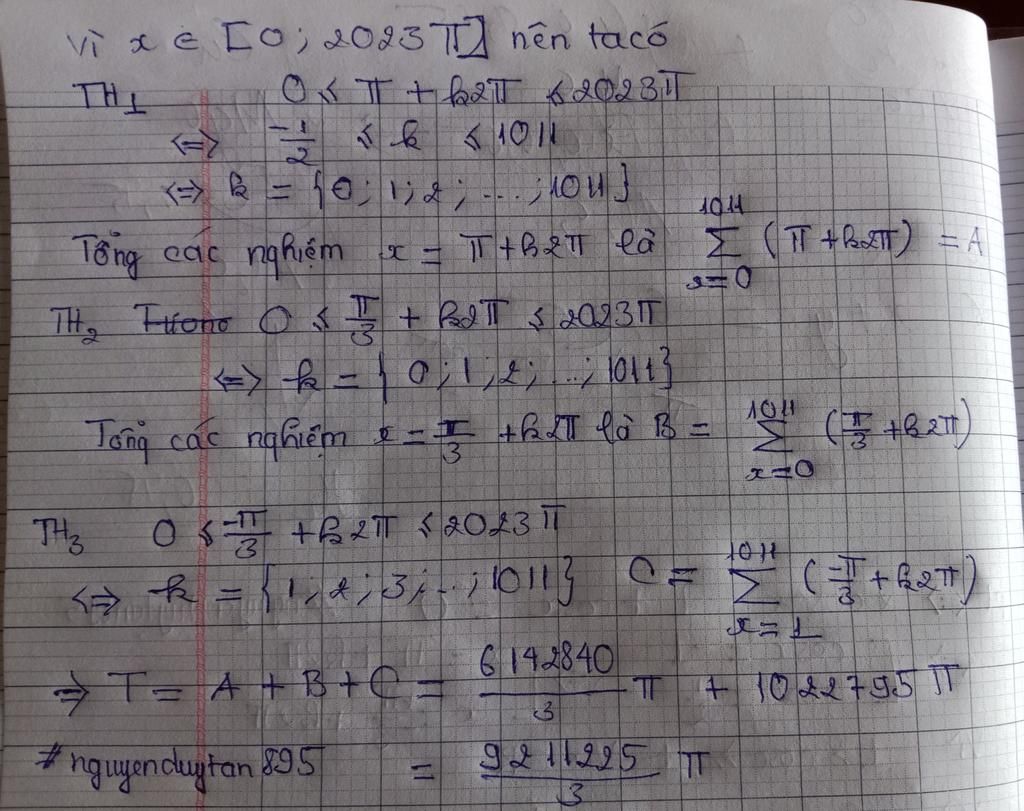 Vì x ∈ [0; 2023π] nên ta có
TH1 0 ≤ π + k2π ≤ 2023π
<=> -1/2 ≤ k ≤ 1011
<=> k = {0; 1; 2; ...; 1011}
Tổng các nghiệm x = π + k2π là ∑_{x=0}^{1011} (π + k2π) = A
TH2 0 ≤ π/3 + k2π ≤ 2023π
<=> k = {0; 1; 2; ...; 1011}
Tổng các nghiệm x = π/3 + k2π là B = ∑_{x=0}^{1011} (π/3 + k2π)
TH3 0 ≤ -π/3 + k2π ≤ 2023π
<=> k = {1; 2; 3; ...; 1011} C = ∑_{x=1}^{1011} (-π/3 + k2π)
=> T = A + B + C = 6142840/3 π + 1022795π
#nguyenduytan895 = 9211225/3 π